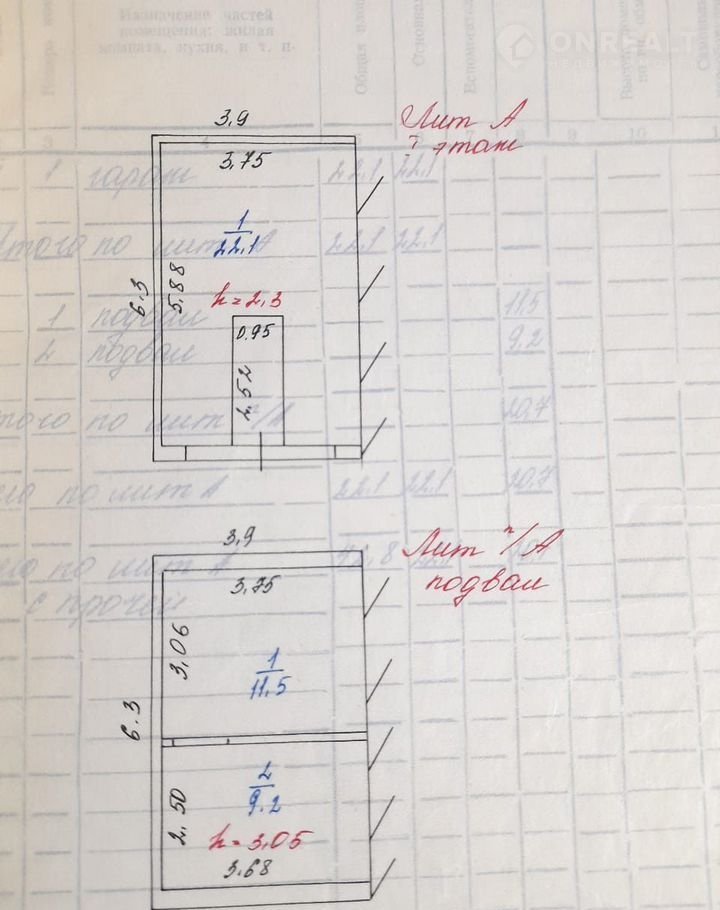 Назначение частей
помещения: жилая
комната, кухня, и т. п.
Общая
Основная
ONREALT
НЕДВИЖИМОСТЬ
3 4 8 9 10
3,9
Лит А
I этаж
3,75
1 гараж 22,1 22,1
1
22.1
Итого по лит А 22,1 22,1
6.3
5.88
h=2,3
1 подвал 11.5
2 подвал 9.2
0,95
2,52
Итого по лит п/А 20,7
по лит А 22,1 22,1 20,7
3,9
Лит п/А
подвал
по лит А 42,8
с прочей
3,75
3,06
1
11.5
6.3
2
9.2
2,50
h=3,05
3,68